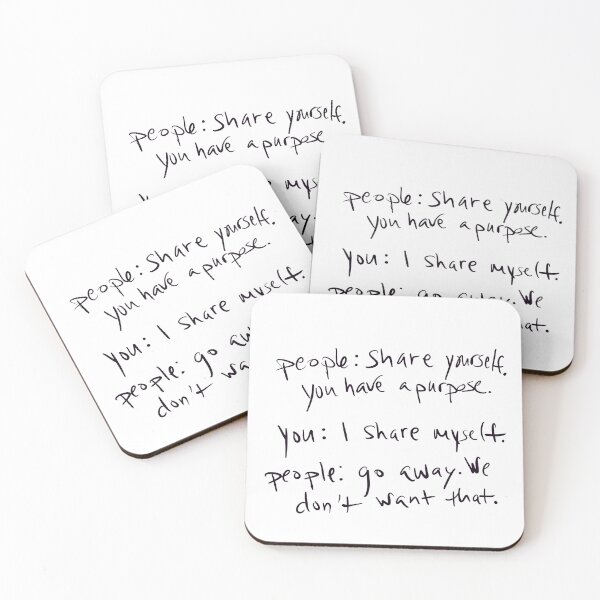 people: Share yourself.
you have a purpose
people: Share yourself.
you have a purpose.
you: I share myself.
people: go away. We
that.
people: Share yourself.
you have a purpose.
you: I share myself.
people: go
don't
people: Share yourself.
you have a purpose.
you: I share myself.
people: go away. We
don't want that.